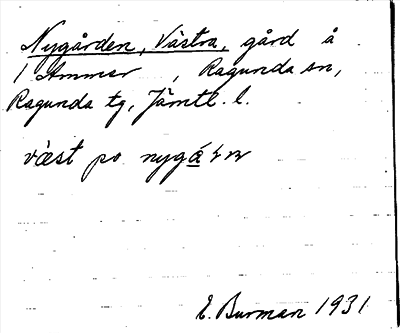 Nygården, Västra, gård å
1 Ammer, Ragunda sn,
Ragunda tg, Jämtl. l.
väst po nyg
E. Burman 1931